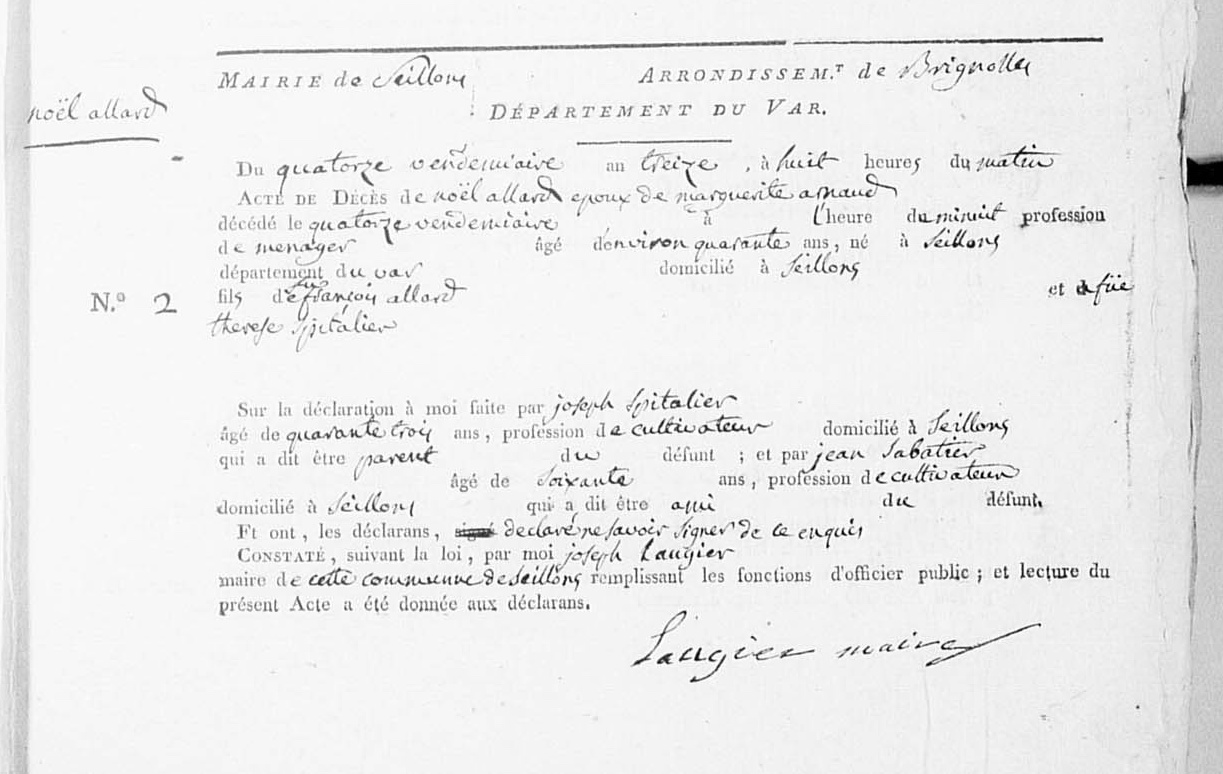 MAIRIE de Seillons ARRONDISSEM.T de Brignolles
noël allard
DÉPARTEMENT DU VAR.
Du quatorze vendemiaire an treize, à huit heures du matin
ACTE DE DÉCÈS de noël allard epoux de marguerite arnaud
décédé le quatorze vendemiaire à l'heure du minuit profession
de menager âgé d'environ quarante ans, né à Seillons
département du var domicilié à Seillons
N.º 2 fils de feu françois allard et de füe
therese Spitalier
Sur la déclaration à moi faite par joseph Spitalier
âgé de quarante trois ans, profession de cultivateur domicilié à Seillons
qui a dit être parent du défunt ; et par jean Sabatier
âgé de Soixante ans, profession de cultivateur
domicilié à Seillons qui a dit être ami du défunt.
Et ont, les déclarans, signé declaré ne savoir signer de ce enquis
CONSTATÉ, suivant la loi, par moi joseph Laugier
maire de cette commune de Seillons remplissant les fonctions d'officier public ; et lecture du
présent Acte a été donnée aux déclarans.
Laugier maire